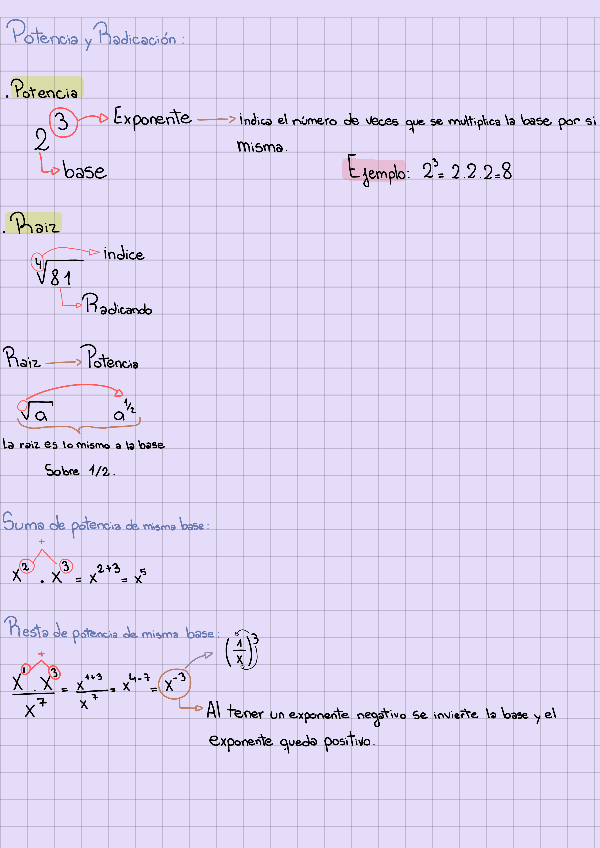 Potencia y Radicación:
. Potencia
2³ → Exponente → indica el número de veces que se multiplica la base por si
misma.
base
Ejemplo: 2³ = 2.2.2=8
. Raiz
indice
⁴√81
Radicando
Raiz → Potencia
√a a^1/2
La raiz es lo mismo a la base
Sobre 1/2.
Suma de potencia de misma base:
+
x² . x³ = x²⁺³ = x⁵
Resta de potencia de misma base: (1/x)³
+
x¹ . x³/x⁷ = x¹⁺³/x⁷ = x⁴⁻⁷ = x⁻³
Al tener un exponente negativo se invierte la base y el
exponente queda positivo.